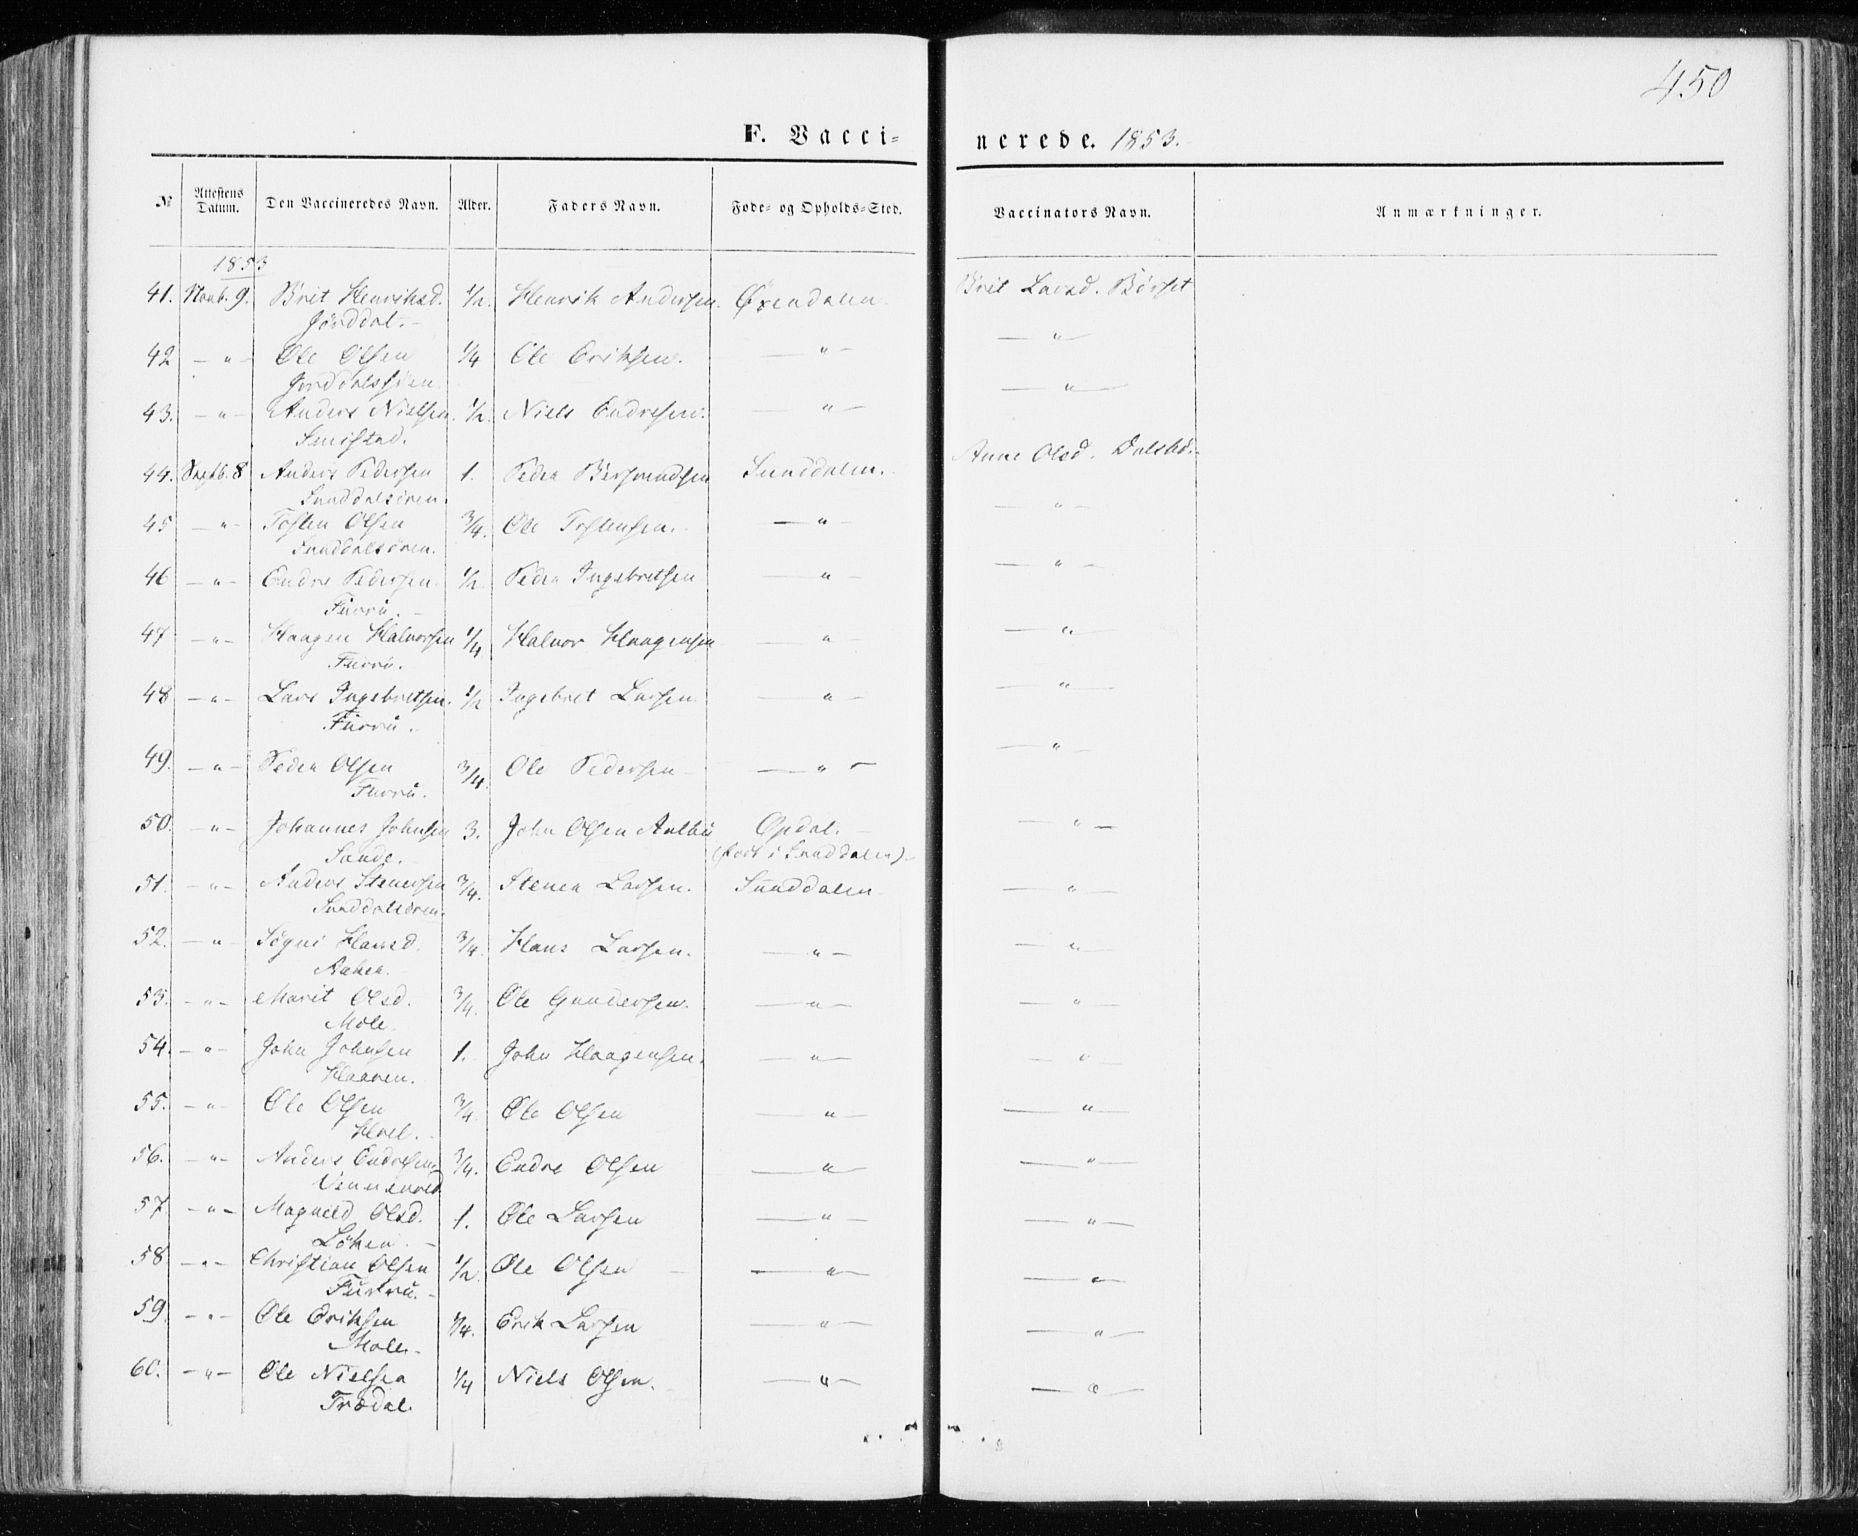 450
F. Vacci= nerede. 1853.
№ Attestens Datum. Den Vaccineredes Navn. Alder. Faders Navn. Føde= og Opholds=Sted. Vaccinators Navn. Anmærkninger.
1853
41. Novb. 9. Brit Henriksd. 1/2. Henrik Andersen. Øxendalen. Brit Larsd. Børset
Jørddal.
42 — " — Ole Olsen 1/4 Ole Eriksen. — " — — " —
Jorddalsøien.
43. — " — Anders Nielsen. 1/2. Niels Endresen. — " — — " —
Smistad.
44. Septb. 8 Anders Pedersen 1. Peder Bersvendsen Sunddalen. Anne Olsd. Dalsbø.
Sunddalsøren.
45 — " — Tosten Olsen 3/4. Ole Tostensen. — " — — " —
Sunddalsøren.
46 — " — Endre Pedersen. 1/2. Peder Ingebretsen — " — — " —
Furru.
47 — " — Haagen Halvorsen 1/4 Halvor Haagensen — " — — " —
Furru.
48 — " — Lars Ingebretsen. 1/2 Ingebret Larsen. — " — — " —
Furru.
49. — " — Peder Olsen 3/4. Ole Pedersen — " — — " —
Furru.
50. — " — Johannes Johnsen 3. John Olsen Aalbu Opdal. — " —
Sande. (født i Sunddalen)
51. — " — Anders Stenersen 3/4. Stener Larsen. Sunddalen — " —
Sunddalsøren.
52. — " — Signi Hansd. 3/4. Hans Larsen. — " — — " —
Aaker.
53. — " — Marit Olsd. 3/4. Ole Gundersen. — " — — " —
Mole.
54. — " — John Johnsen 1. John Haagensen. — " — — " —
Haaven.
55. — " — Ole Olsen 3/4. Ole Olsen — " — — " —
Hoel.
56. — " — Anders Endresen 3/4. Endre Olsen — " — — " —
57. — " — Magnild Olsd. 1. Ole Larsen — " — — " —
Løken.
58. — " — Christian Olsen 1/2. Ole Olsen — " — — " —
Furru.
59. — " — Ole Eriksen 1/4. Erik Larsen — " — — " —
Mole.
60. — " — Ole Nielsen 1/4 Niels Olsen. — " — — " —
Trædal.